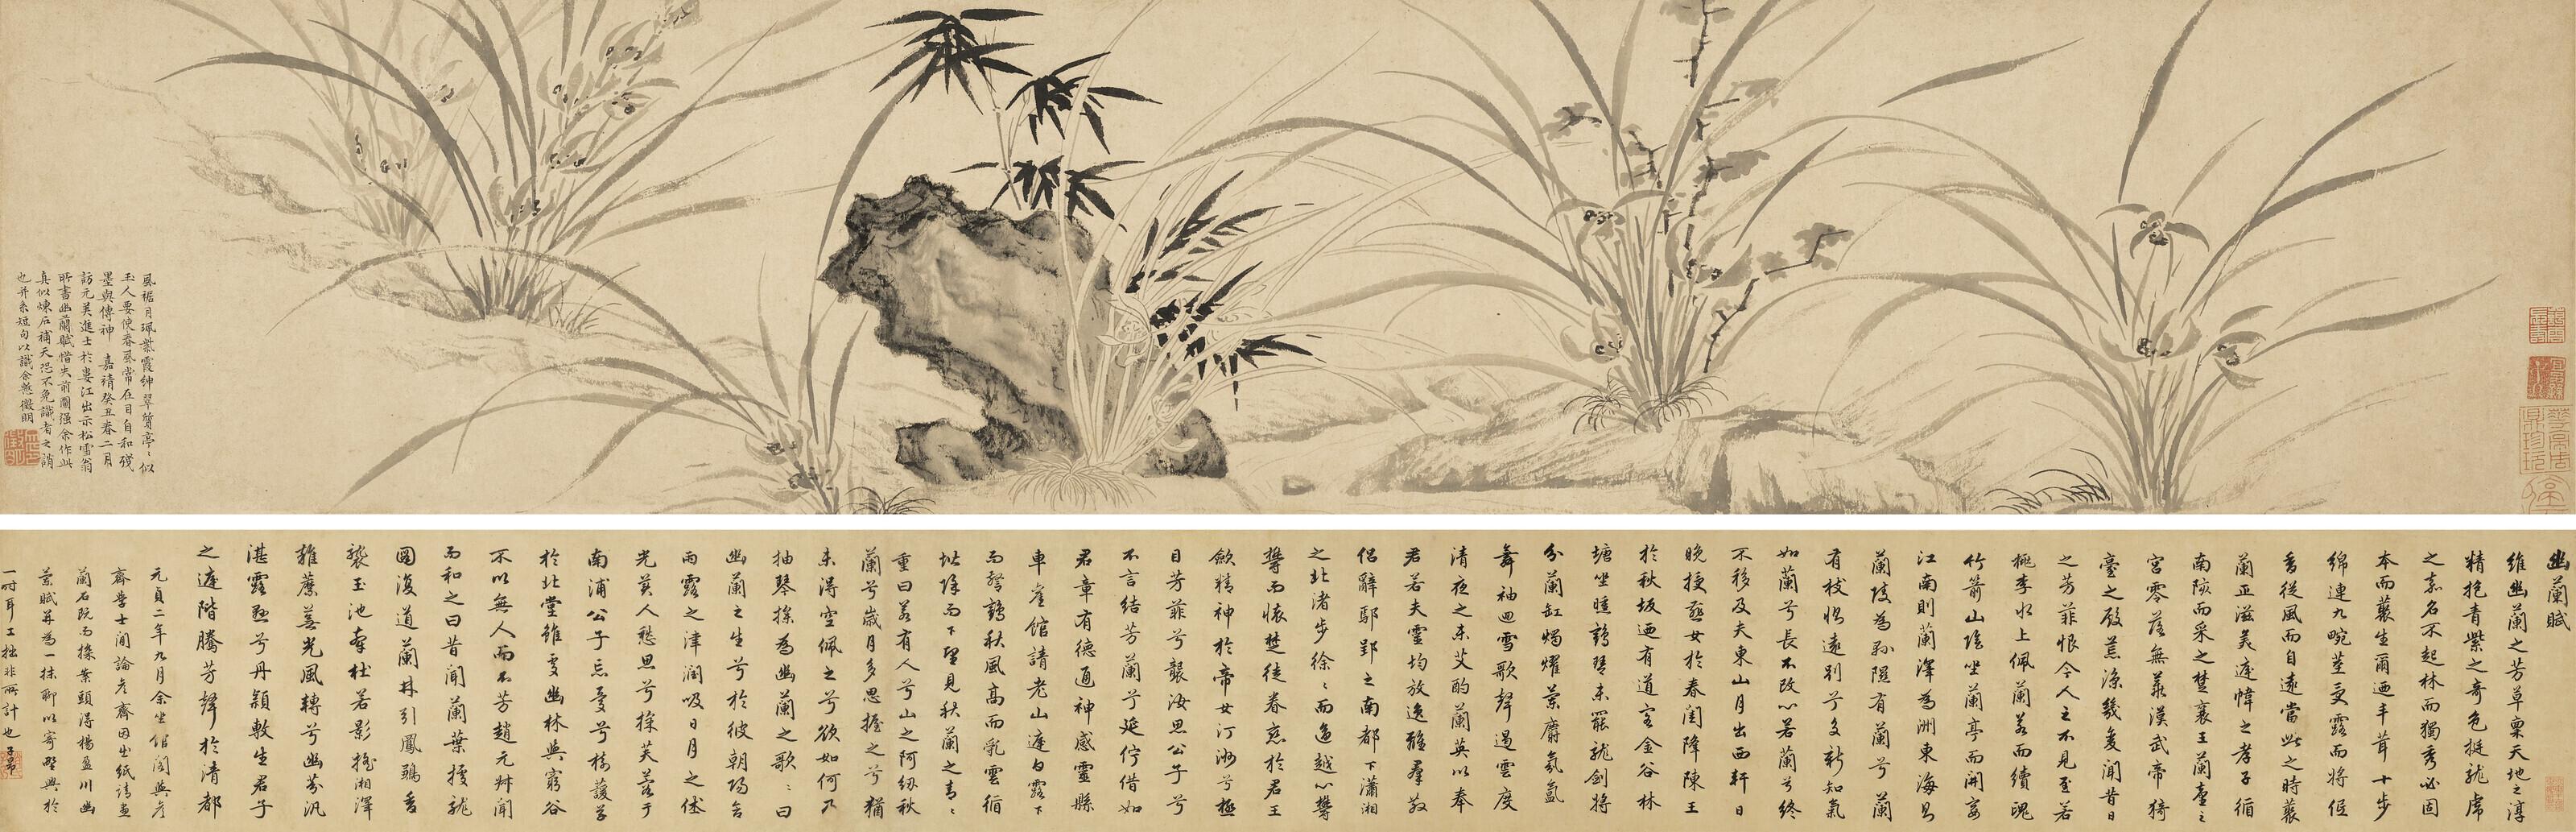 風裾月珮紫霞紳翠質亭〻似
玉人要使春風常在目自和殘
墨與傳神 嘉靖癸丑春二月
訪元美進士於婁江出示松雪翁
所書幽蘭賦惜失前圖强余作此
真似煉石補天恐不免識者之誚
也并系短句以識余愆徵明
幽蘭賦
維幽蘭之芳草稟天地之淳
精抱青紫之奇色挺龍虎
之嘉名不起林而獨秀必固
本而叢生爾迺丰茸十步
綿連九畹莖受露而將低
香從風而自遠當此之時叢
蘭正滋美庭幃之孝子循
南陔而采之楚襄王蘭臺之
宮零落無叢漢武帝猗
蘭之殿荒涼幾變聞昔日
之芳菲恨今人之不見至若
桃李水上佩蘭若而續魂
竹箭山陰坐蘭亭而開宴
江南則蘭澤為洲東海則
蘭陵為縣隰有蘭兮蘭
有枝贈遠別兮交新知氣
如蘭兮長不改心若蘭兮終
不移及夫東山月出西軒日
晚授燕女於春閨降陳王
於秋坂迺有送客金谷林
塘坐曛鶴琴未罷龍劍將
分蘭缸燭耀蘭麝氛氳
舞袖迴雪歌聲遏雲度
清夜之未艾酌蘭英以奉
君若夫靈均放逐離羣散
侶辭鄢郢之南都下瀟湘
之北渚步徐〻而適越心鬱
鬱而懷楚徒眷戀於君王
斂精神於帝女汀洲兮極
目芳菲兮襲汝思公子兮
不言結芳蘭兮延佇借如
君章有德通神感靈縣
車舊館請老山庭白露下
而驚鶴秋風高而亂雲循
堦除而下望見秋蘭之青〻
重曰若有人兮山之阿紉秋
蘭兮歲月多思握之兮猶
未得空佩之兮欲如何乃
抽琴操為幽蘭之歌〻曰
幽蘭之生兮於彼朝陽含
雨露之津潤吸日月之休
光美人愁思兮採芙蓉于
南浦公子忘憂兮樹萱草
於北堂雖處幽林與窮谷
不以無人而不芳趙元叔聞
而和之曰昔聞蘭葉據龍
圖復道蘭林引鳳鶵香
襲玉池 杜若影摇湘澤
雜蘼蕪光風轉兮幽芬汎
湛露 兮丹穎敷生君子
之庭階騰芳聲於清都
元貞二年九月余坐館閣與彥
齋學士閒論 彥齋因出紙請畫
蘭石既而 案頭得楊盈川幽
蘭賦并為一抹聊以寄野興於
一時耳工拙非所計也子昂